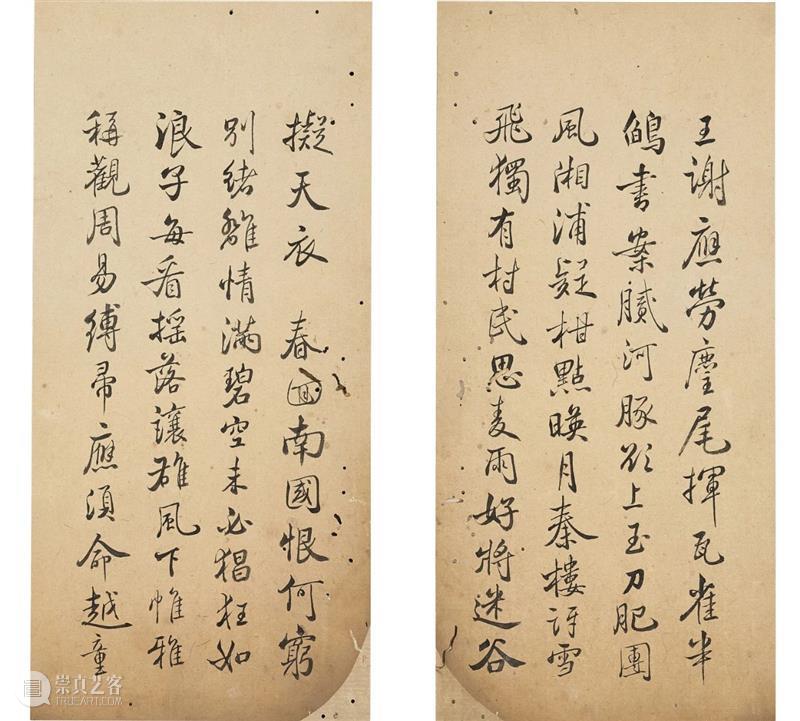 王謝應勞麈尾揮瓦雀半
鵮書案膩河豚欲上玉刀肥團
風湘浦疑柑點暎月秦樓訝雪
飛獨有村民思麦雨好將迷谷
擬天衣 春囬南國恨何窮
別緒離情滿碧空未必猖狂如
浪子每看摇落讓雄風下帷雅
稱觀周易縛帚應須命越童
崇真艺客
TRUEART.COM